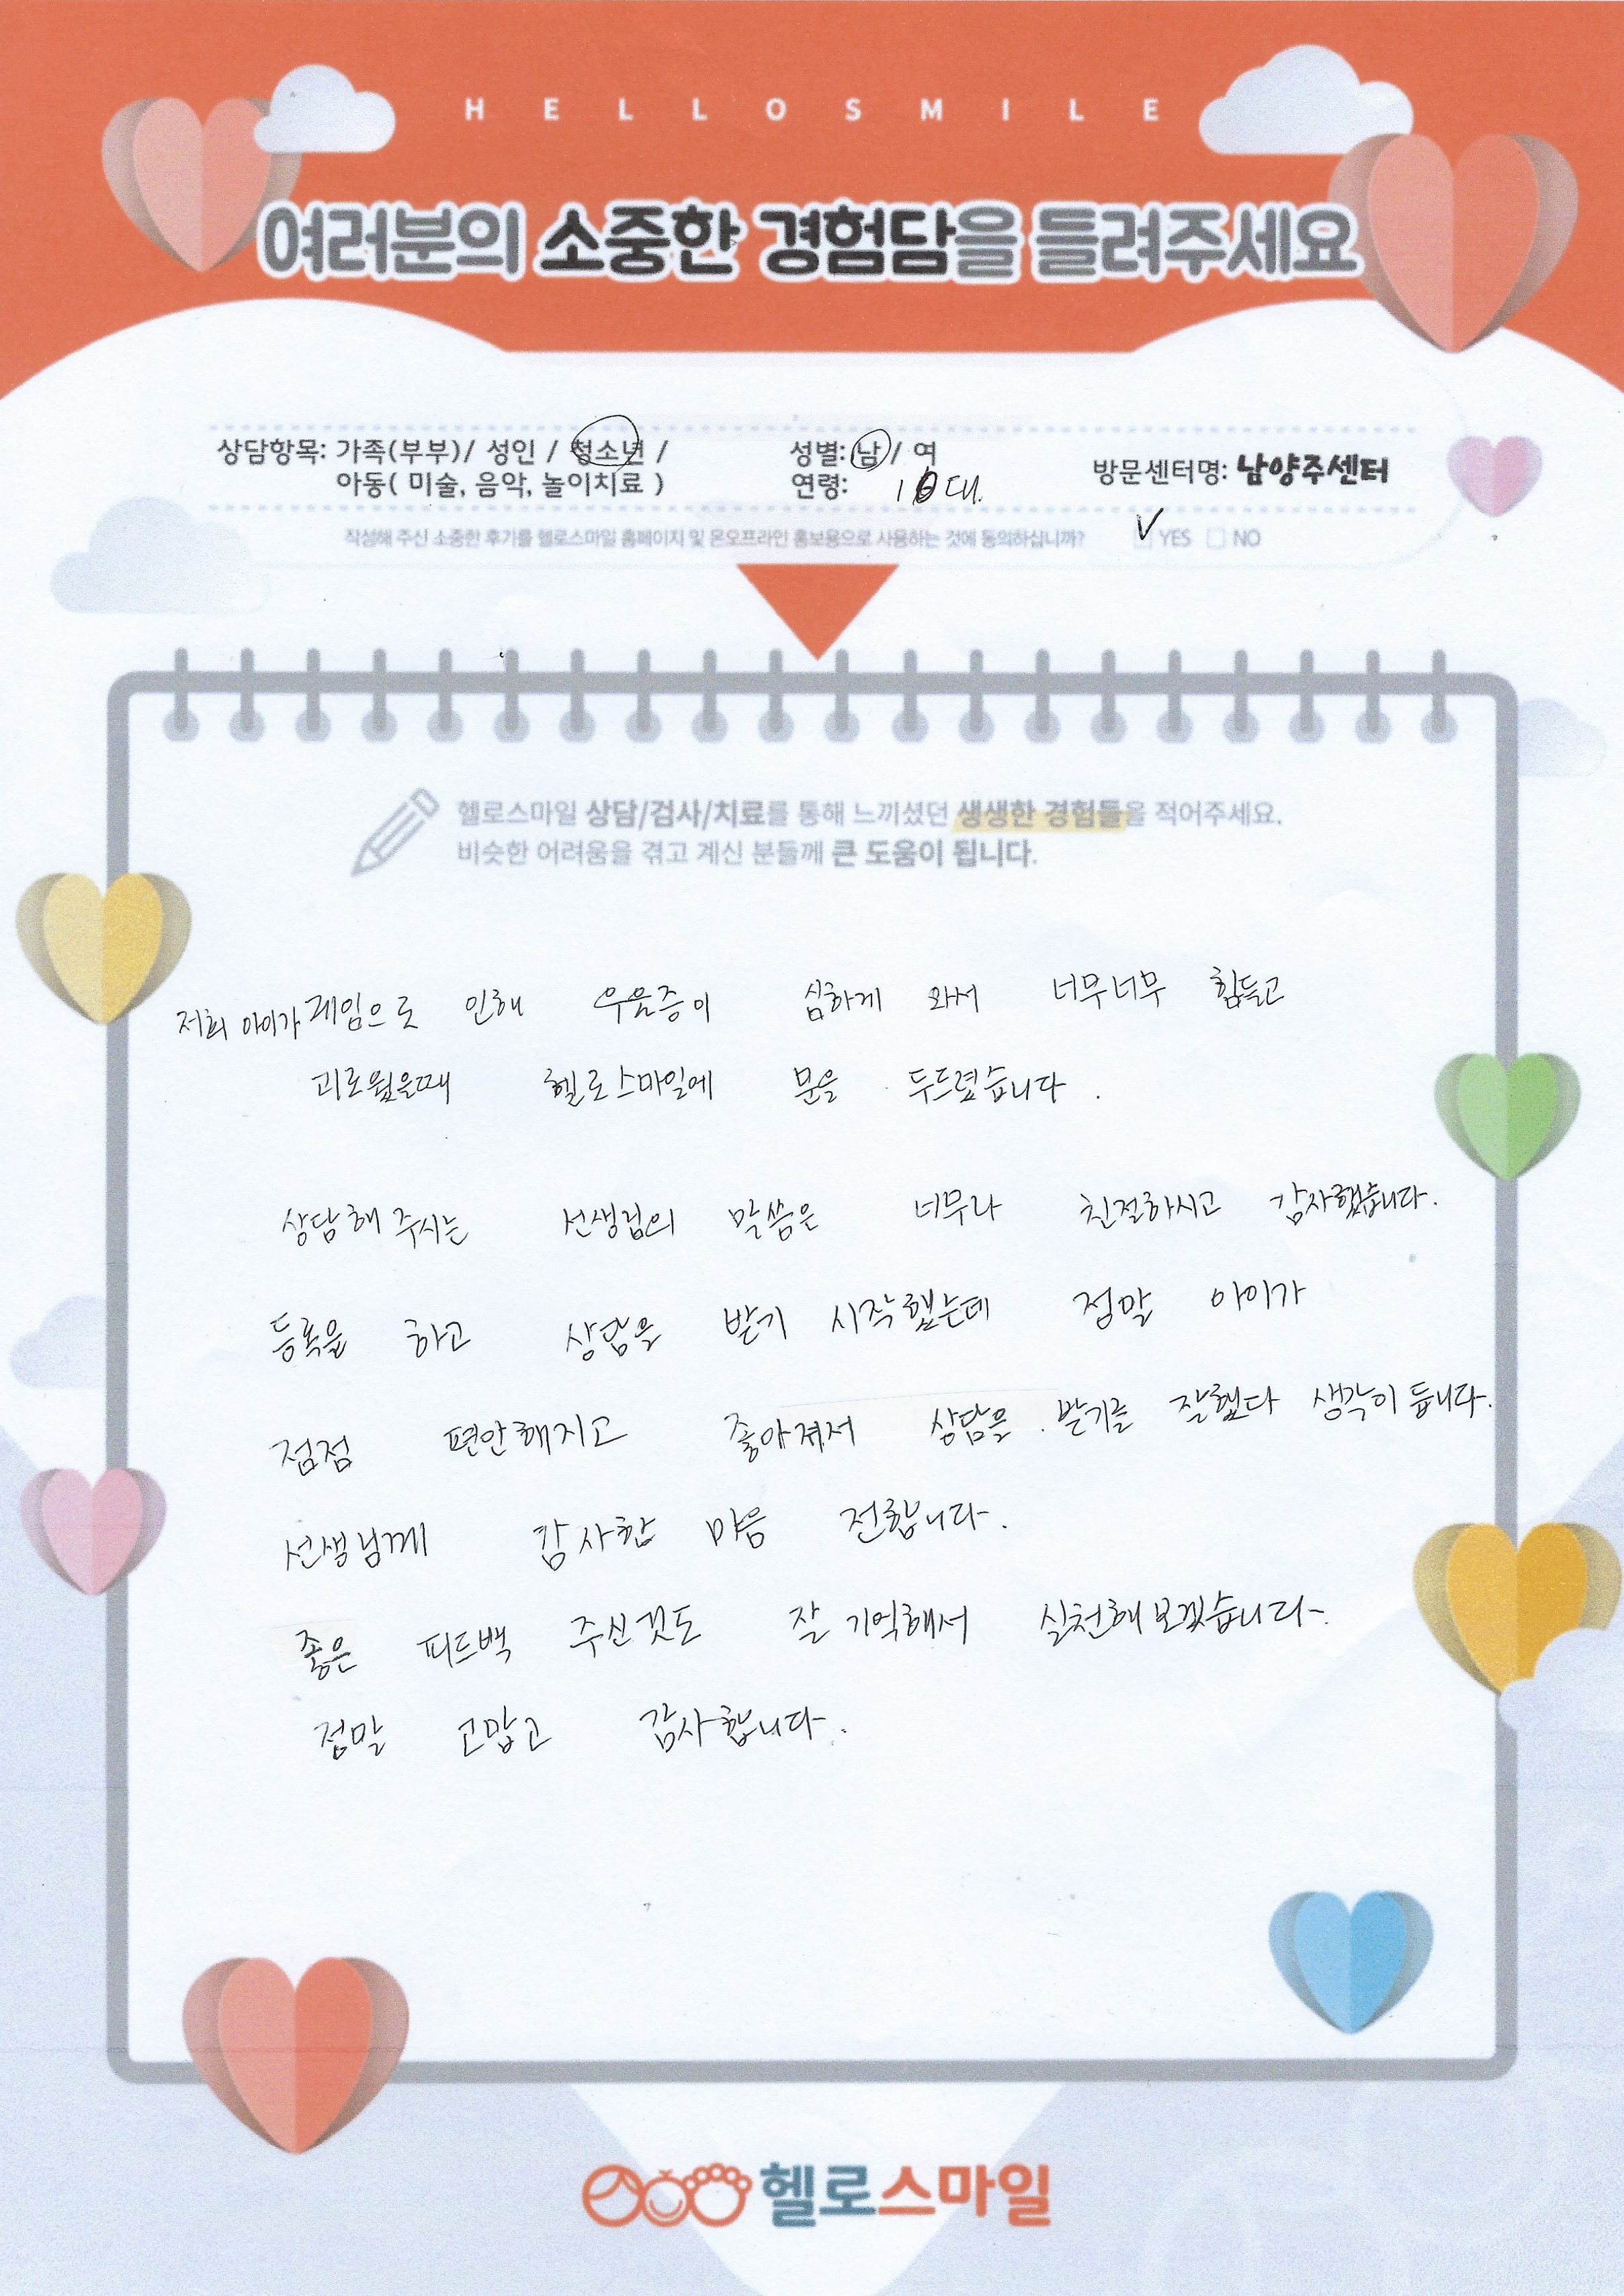 HELLOSMILE
여러분의 소중한 경험담을 들려주세요
상담항목: 가족(부부)/ 성인 / 청소년 /
아동( 미술, 음악, 놀이치료 )
성별: 남 / 여
연령: 10대.
방문센터명: 남양주센터
작성해 주신 소중한 후기를 헬로스마일 홈페이지 및 온오프라인 홍보용으로 사용하는 것에 동의하십니까? YES NO
헬로스마일 상담/검사/치료를 통해 느끼셨던 생생한 경험들을 적어주세요.
비슷한 어려움을 겪고 계신 분들께 큰 도움이 됩니다.
저희 아이가 게임으로 인해 우울증이 심하게 와서 너무너무 힘들고
괴로웠을때 헬로스마일에 문을 두드렸습니다.
상담해 주시는 선생님의 말씀은 너무나 친절하시고 감사했습니다.
등록을 하고 상담을 받기 시작했는데 정말 아이가
점점 편안해지고 좋아져서 상담을 받기를 잘했다 생각이 듭니다.
선생님께 감사한 마음 전합니다.
좋은 피드백 주신것도 잘 기억해서 실천해보겠습니다.
정말 고맙고 감사합니다.
헬로스마일